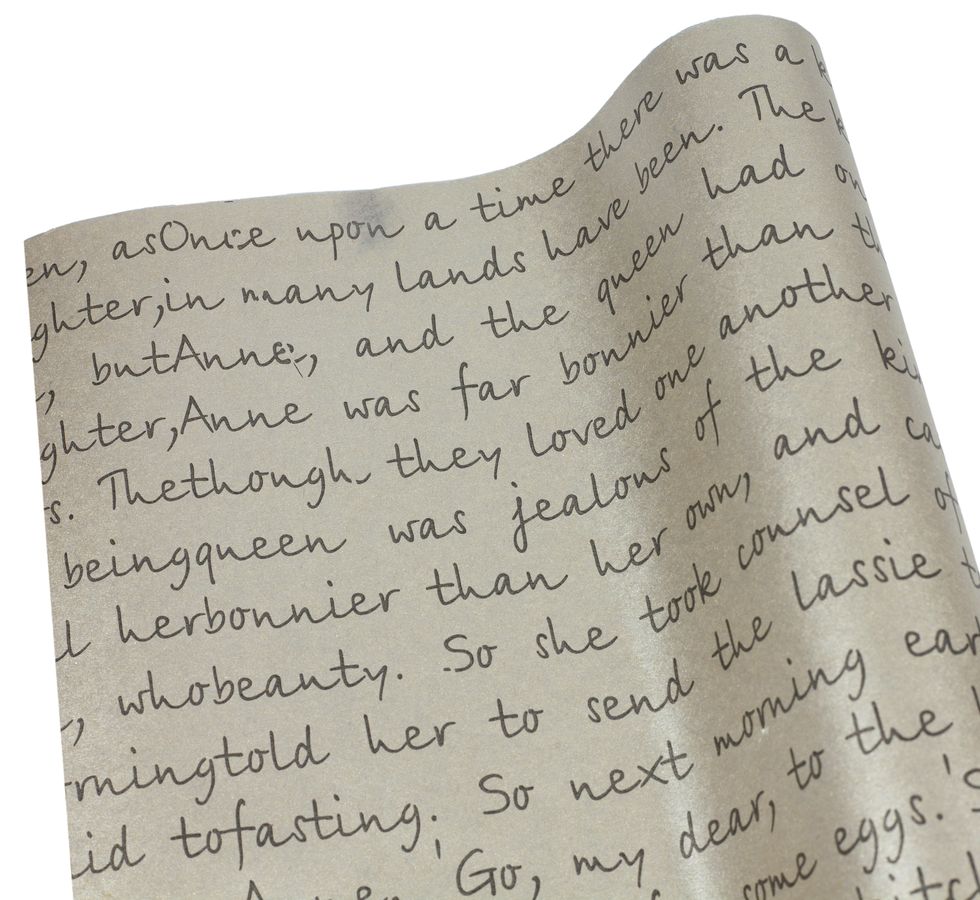 en, asOnce upon a time there was a
ghter,in many lands have been. The
, butAnne, and the queen had
ghter,Anne was far bonnier than
s. Thethough they loved one another
beingqueen was jealous of the
l herbonnier than her own, and
, whobeauty. So she took counsel of
rningtold her to send the lassie
id tofasting. So next morning
'Go, my dear, to the
some eggs.'